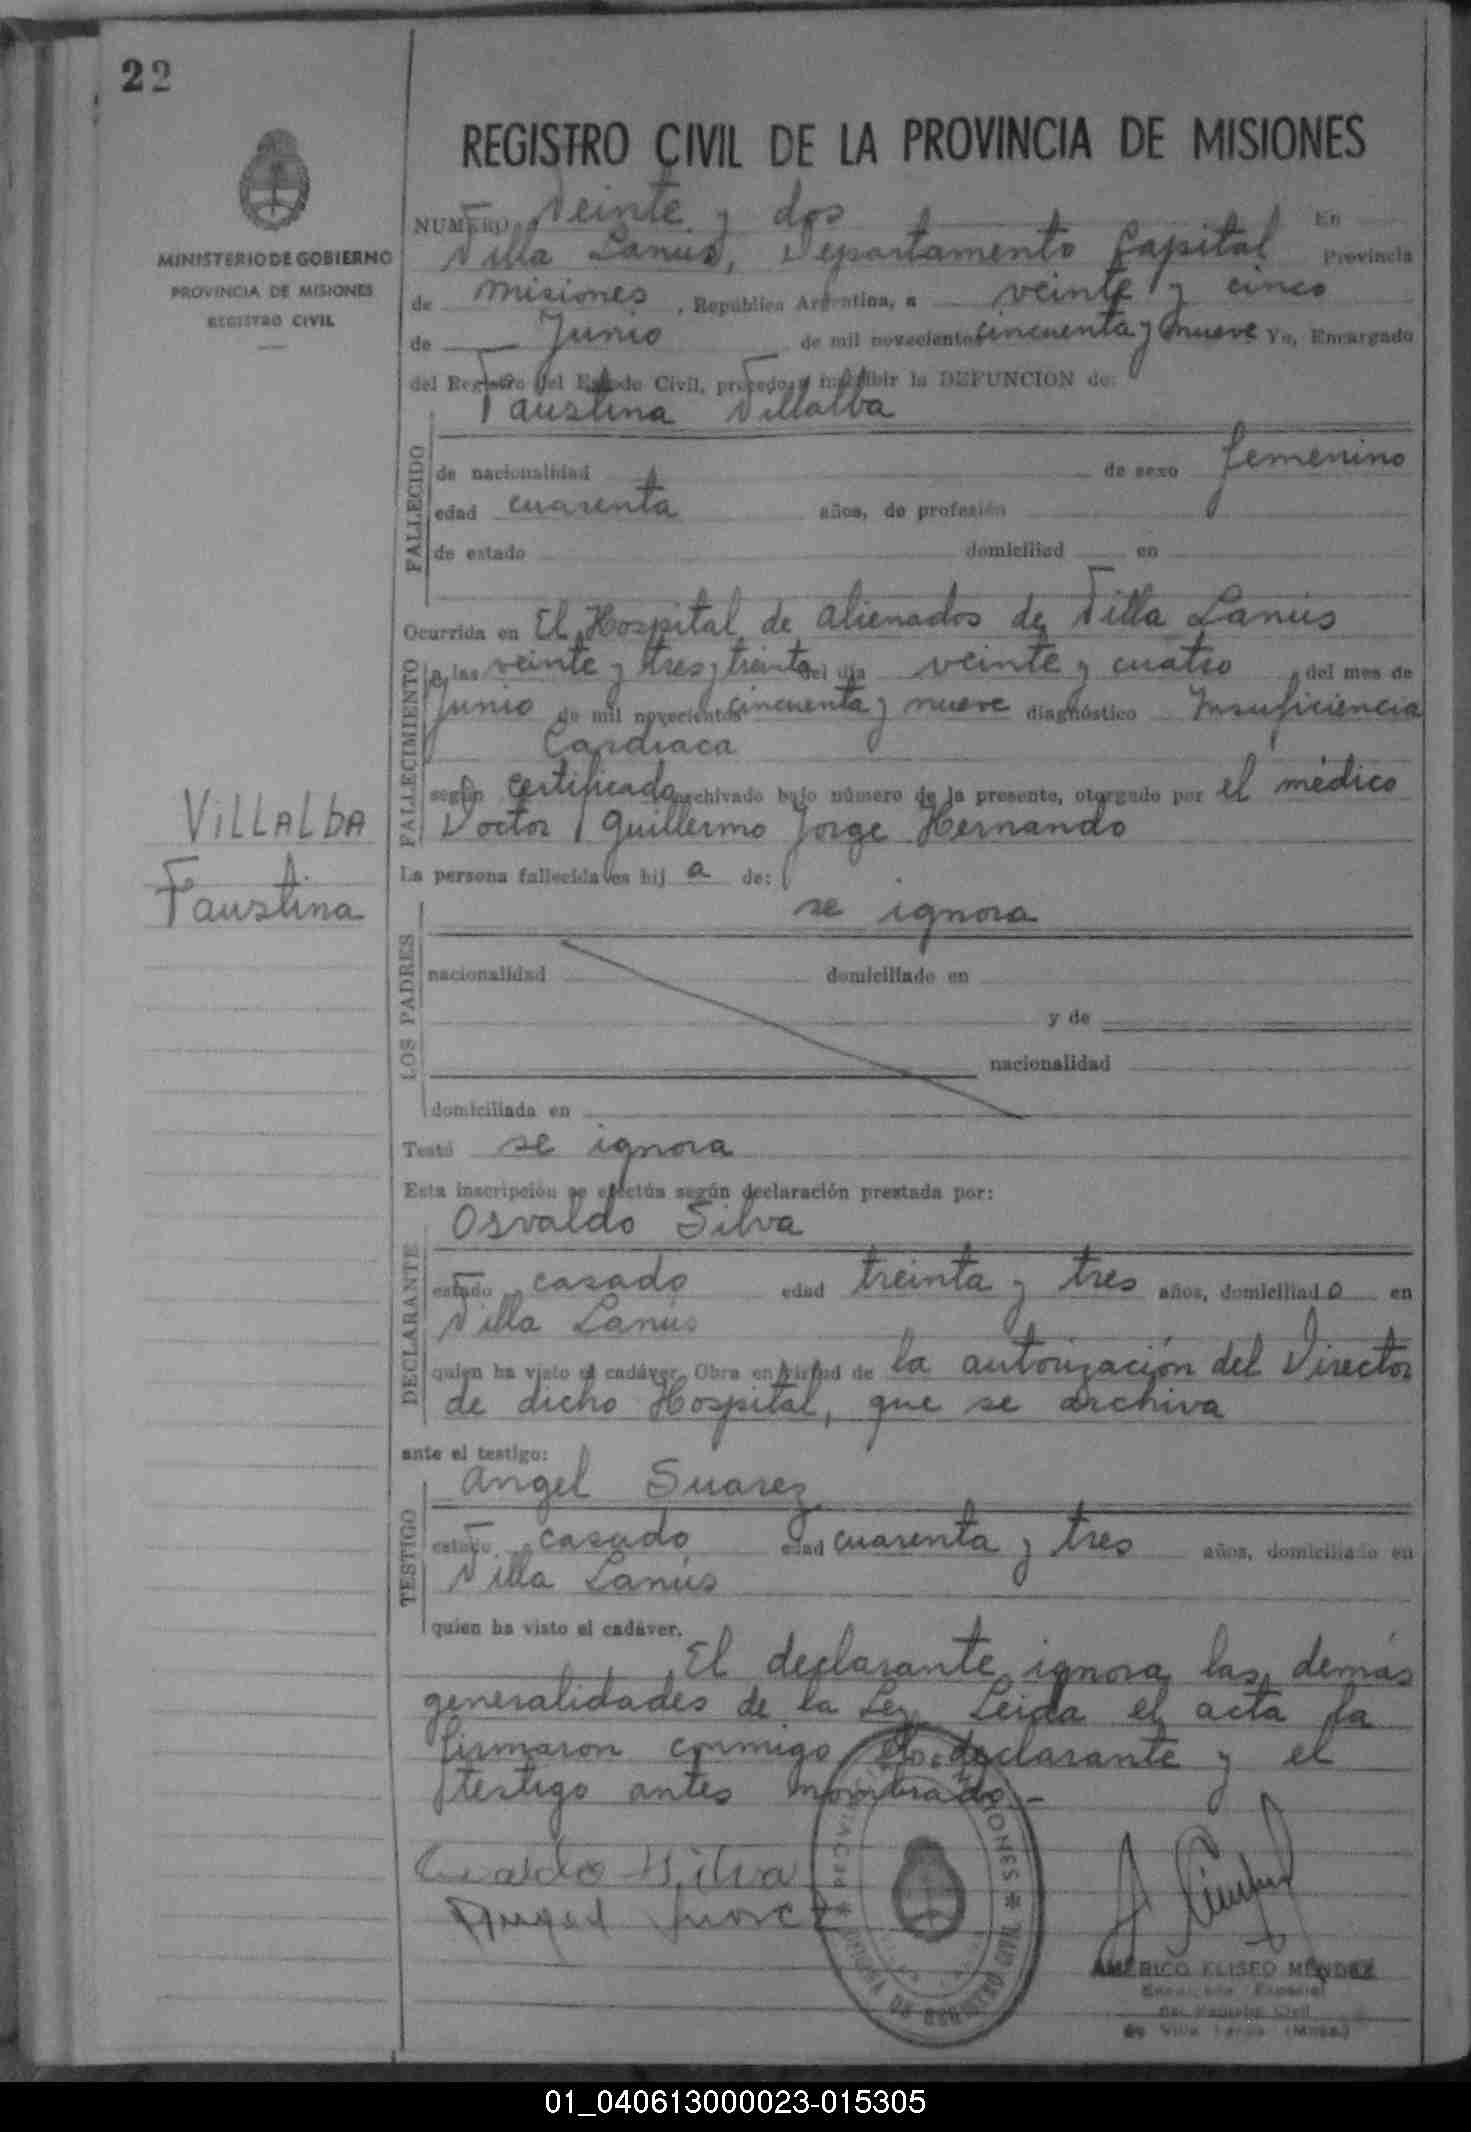 22
REGISTRO CIVIL DE LA PROVINCIA DE MISIONES
MINISTERIO DE GOBIERNO
PROVINCIA DE MISIONES
REGISTRO CIVIL
NUMERO Veinte y dos En
Villa Lanús, Departamento Capital Provincia
de Misiones, República Argentina, a veinte y cinco
de Junio de mil novecientos cincuenta y nueve Yo, Encargado
del Registro del Estado Civil, procedo a inscribir la DEFUNCION de:
Faustina Villalba
FALLECIDO
de nacionalidad de sexo femenino
edad cuarenta años, de profesión
de estado domiciliad en
Ocurrida en El Hospital de alienados de Villa Lanús
FALLECIMIENTO
a las veinte y tres y treinta del día veinte y cuatro del mes de
Junio de mil novecientos cincuenta y nueve diagnóstico Insuficiencia
Cardiaca
según certificado archivado bajo número de la presente, otorgado por el médico
Doctor Guillermo Jorge Hernando
VILLALBA
Faustina
La persona fallecida es hij a de:
se ignora
LOS PADRES
nacionalidad domiciliado en
y de
nacionalidad
domiciliada en
Testó se ignora
Esta inscripción se efectúa según declaración prestada por:
Osvaldo Silva
DECLARANTE
estado casado edad treinta y tres años, domiciliad o en
Villa Lanús
quien ha visto el cadáver. Obra en virtud de la autorización del Director
de dicho Hospital, que se archiva
ante el testigo:
Angel Suarez
TESTIGO
estado casado edad cuarenta y tres años, domiciliado en
Villa Lanús
quien ha visto el cadáver.
El declarante ignora las demás
generalidades de la Ley. Leida el acta la
firmaron conmigo el declarante y el
testigo antes nombrado.-
Silva
Angel Suarez
AMERICO ELISEO MENDEZ
del Registro Civil
de Villa Lanús (Mnes.)
01_040613000023-015305